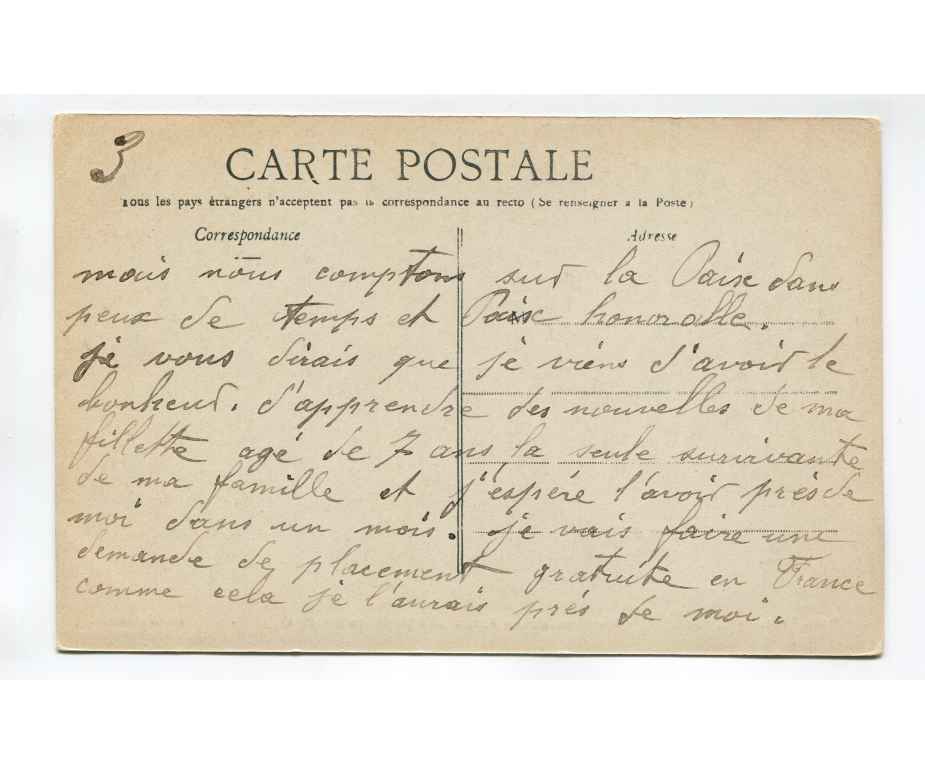 3
CARTE POSTALE
Tous les pays étrangers n'acceptent pas la correspondance au recto (Se renseigner à la Poste)
Correspondance
Adresse
mais nous comptons sur la Paix dans
peux de temps et Paix honoralle.
je vous dirais que je viens d'avoir le
bonheur. d'apprendre des nouvelles de ma
fillette agé de 7 ans la seule survivante
de ma famille et j'espére l'avoir prés de
moi dans un mois. je vais faire une
demande de placement gratuite en France
comme cela je l'aurais prés de moi.